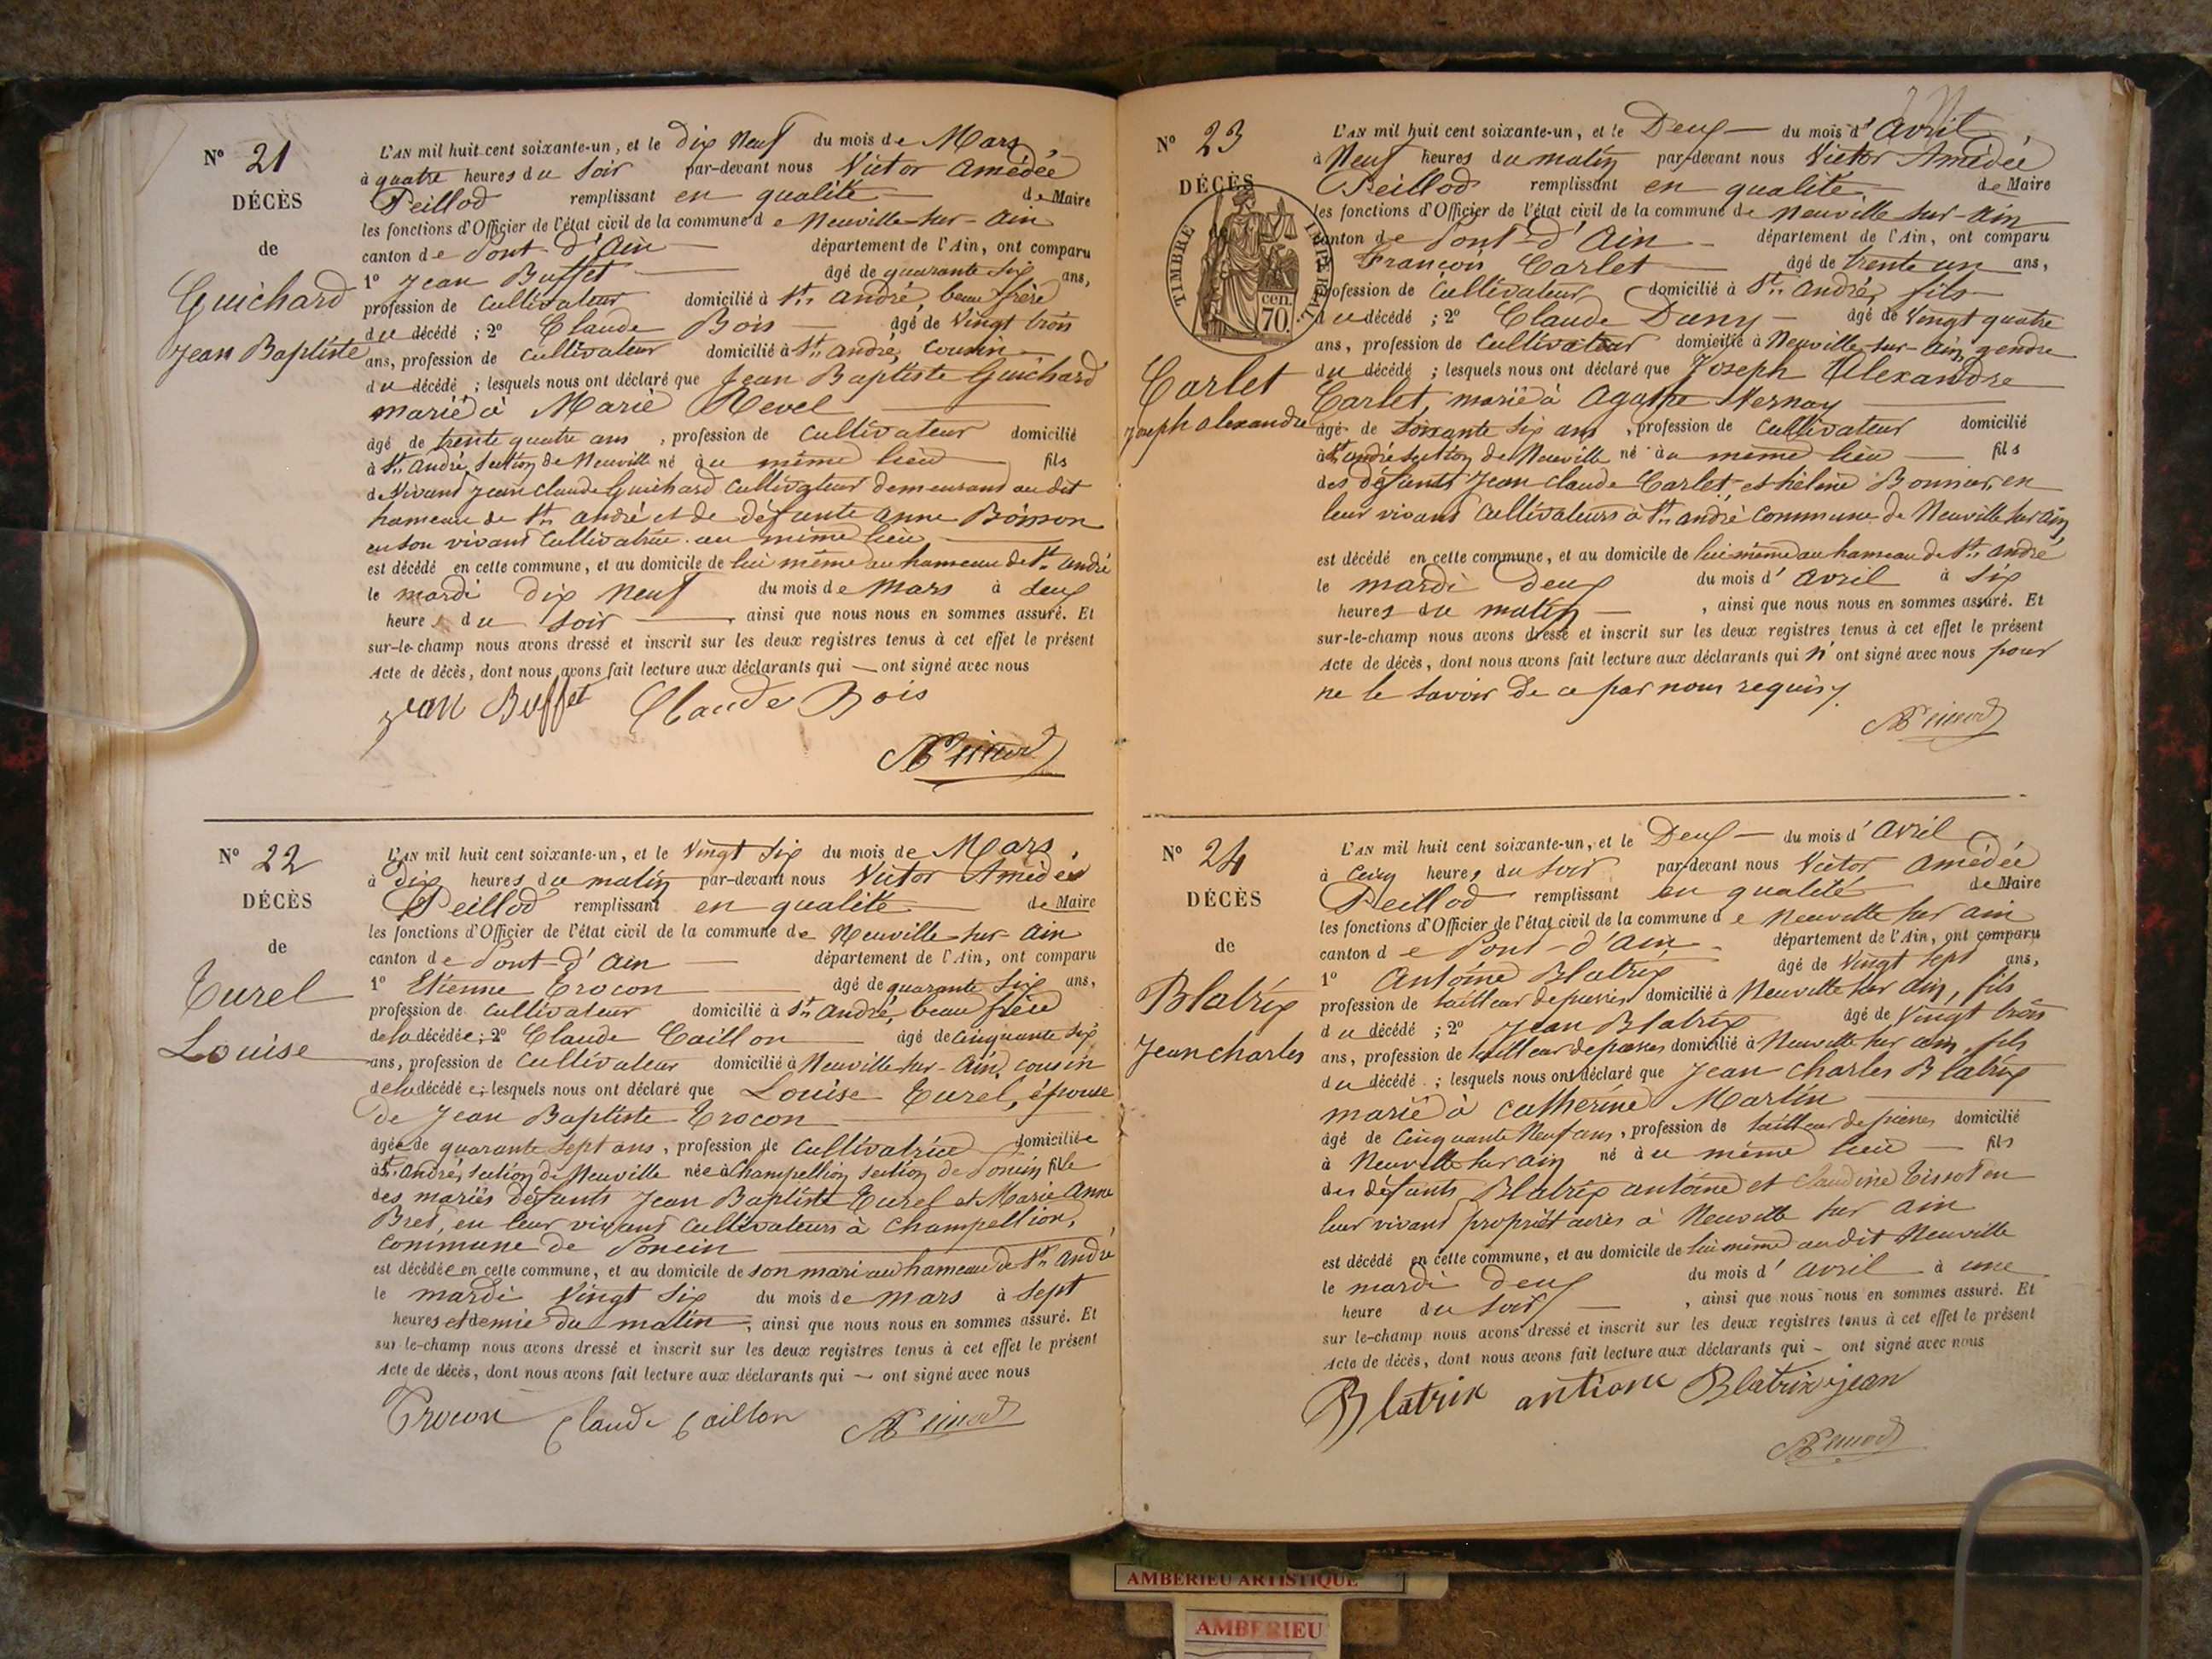 N° 21
DÉCÈS
de
Guichard
Jean Baptiste
L'AN mil huit cent soixante-un, et le dix Neuf du mois de Mars,
à quatre heures du soir par-devant nous Victor Amédée
Peillod remplissant en qualité de Maire
les fonctions d'Officier de l'état civil de la commune de Neuville-sur-Ain
canton de Pont-d'Ain département de l'Ain, ont comparu
1° Jean Buffet âgé de quarante six ans,
profession de cultivateur domicilié à St. André, beau frère
du décédé ; 2° Claude Bois âgé de Vingt trois
ans, profession de cultivateur domicilié à St. André, cousin
du décédé ; lesquels nous ont déclaré que Jean Baptiste Guichard
marié à Marie Revel
âgé de trente quatre ans, profession de cultivateur domicilié
à St. André, section de Neuville né au même lieu fils
de Vivant Jean Claude Guichard cultivateur demeurant au dit
hameau de St. André et de défunte Anne Boisson
en son vivant cultivatrice au même lieu
est décédé en cette commune, et au domicile de lui même au hameau de St. André
le mardi dix Neuf du mois de Mars à deux
heures du soir, ainsi que nous nous en sommes assuré. Et
sur-le-champ nous avons dressé et inscrit sur les deux registres tenus à cet effet le présent
Acte de décès, dont nous avons fait lecture aux déclarants qui — ont signé avec nous
Jean Buffet Claude Bois
N° 22
DÉCÈS
de
Turel
Louise
L'AN mil huit cent soixante-un, et le Vingt six du mois de Mars,
à dix heures du matin par-devant nous Victor Amédée
Peillod remplissant en qualité de Maire
les fonctions d'Officier de l'état civil de la commune de Neuville-sur-Ain
canton de Pont-d'Ain département de l'Ain, ont comparu
1° Etienne Trocon âgé de quarante six ans,
profession de cultivateur domicilié à St. André, beau frère
de la décédée ; 2° Claude Caillon âgé de cinquante six
ans, profession de cultivateur domicilié à Neuville-sur-Ain, cousin
de la décédée ; lesquels nous ont déclaré que Louise Turel, épouse
de Jean Baptiste Trocon
âgée de quarante sept ans, profession de cultivatrice domiciliée
à St. André, section de Neuville née à Champellion section de Poncin fille
des mariés défunts Jean Baptiste Turel et Marie Anne
Bret, en leur vivant cultivateurs à Champellion,
commune de Poncin
est décédée en cette commune, et au domicile de son mari au hameau de St. André
le mardi Vingt six du mois de mars à sept
heures et demie du matin, ainsi que nous nous en sommes assuré. Et
sur le-champ nous avons dressé et inscrit sur les deux registres tenus à cet effet le présent
Acte de décès, dont nous avons fait lecture aux déclarants qui — ont signé avec nous
Trocon Claude Caillon
N° 23
DÉCÈS
TIMBRE IMPERIAL
70 cen.
Carlet
Joseph Alexandre
L'AN mil huit cent soixante-un, et le Deux du mois d'Avril,
à Neuf heures du matin par-devant nous Victor Amédée
Peillod remplissant en qualité de Maire
les fonctions d'Officier de l'état civil de la commune de Neuville sur-Ain
canton de Pont-d'Ain département de l'Ain, ont comparu
François Carlet âgé de trente un ans,
profession de Cultivateur domicilié à St. André, fils
du décédé ; 2° Claude Dany âgé de Vingt quatre
ans, profession de Cultivateur domicilié à Neuville-sur-Ain, gendre
du décédé ; lesquels nous ont déclaré que Joseph Alexandre
Carlet, marié à Agathe Vernay
âgé de soixante six ans, profession de Cultivateur domicilié
à St. André section de Neuville né au même lieu fils
des défunts Jean Claude Carlet et hélène Bonnier, en
leur vivant cultivateurs à St. André commune de Neuville sur Ain,
est décédé en cette commune, et au domicile de lui même au hameau de St. André
le mardi deux du mois d'Avril à six
heures du matin, ainsi que nous nous en sommes assuré. Et
sur-le-champ nous avons dressé et inscrit sur les deux registres tenus à cet effet le présent
Acte de décès, dont nous avons fait lecture aux déclarants qui n'ont signé avec nous pour
ne le savoir de ce par nous requis.
N° 24
DÉCÈS
de
Blatrix
Jean charles
L'AN mil huit cent soixante-un, et le Deux du mois d'Avril
à cinq heures du soir par-devant nous Victor Amédée
Peillod remplissant en qualité de Maire
les fonctions d'Officier de l'état civil de la commune de Neuville sur Ain
canton de Pont-d'Ain département de l'Ain, ont comparu
1° Antoine Blatrix âgé de Vingt sept ans,
profession de tailleur de pierres domicilié à Neuville sur Ain, fils
du décédé ; 2° Jean Blatrix âgé de Vingt trois
ans, profession de tailleur de pierres domicilié à Neuville sur Ain, fils
du décédé ; lesquels nous ont déclaré que Jean Charles Blatrix
marié à Catherine Martin
âgé de Cinquante Neuf ans, profession de tailleur de pierres domicilié
à Neuville sur Ain né au même lieu fils
des défunts Blatrix Antoine et Claudine Tissot en
leur vivant propriétaires à Neuville sur Ain
est décédé en cette commune, et au domicile de lui même au dit Neuville
le mardi deux du mois d'Avril à une
heure du soir, ainsi que nous nous en sommes assuré. Et
sur le-champ nous avons dressé et inscrit sur les deux registres tenus à cet effet le présent
Acte de décès, dont nous avons fait lecture aux déclarants qui — ont signé avec nous
Blatrix antione Blatrix jean
AMBERIEU ARTISTIQUE
AMBERIEU